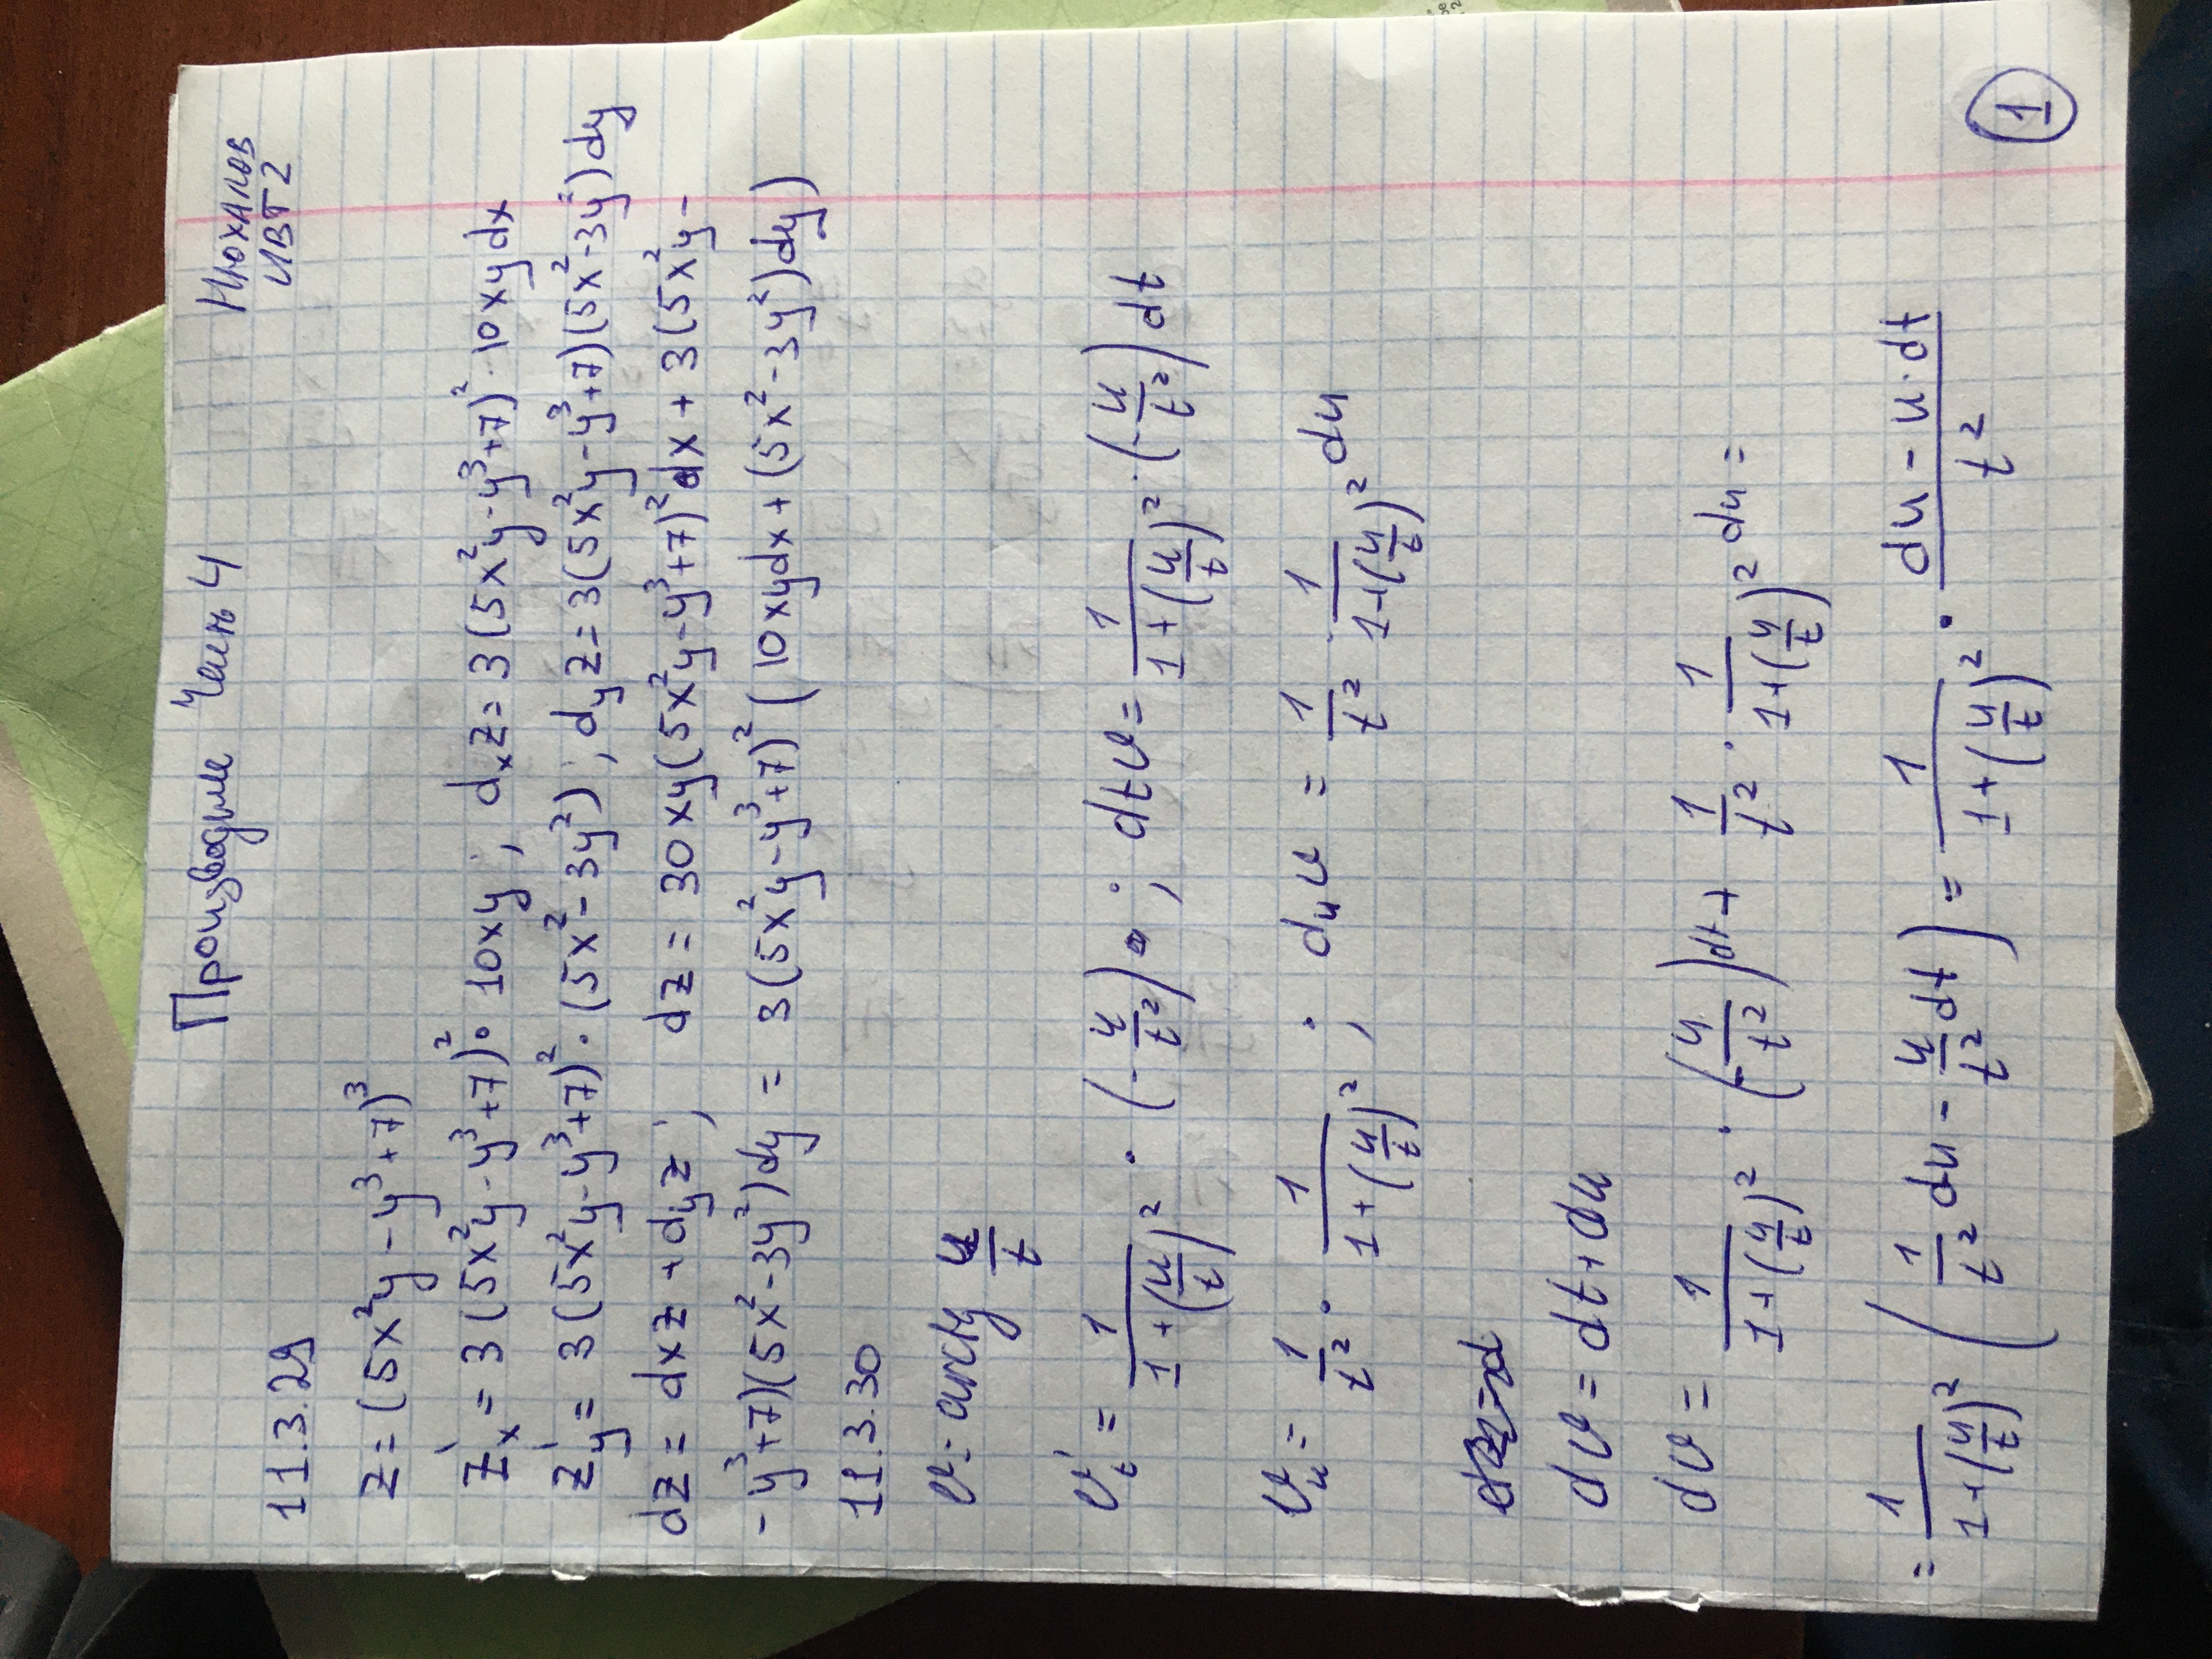 Производные Часть 4
Нюхалов
ИВТ 2
11.3.29
z = (5x²y - y³ + 7)³
z'ₓ = 3(5x²y - y³ + 7)² · 10xy ; dₓz = 3(5x²y - y³ + 7)² · 10xy dx
z'_y = 3(5x²y - y³ + 7)² · (5x² - 3y²) ; d_y z = 3(5x²y - y³ + 7)(5x² - 3y²) dy
dz = dxz + d_y z ; dz = 30xy(5x²y - y³ + 7)² dx + 3(5x²y -
- y³ + 7)(5x² - 3y²) dy = 3(5x²y - y³ + 7)² (10xydx + (5x² - 3y²)dy)
11.3.30
v = arctg u/t
v'_t = 1/(1 + (u/t)²) · (-u/t²) ; dtv = 1/(1 + (u/t)²) · (-u/t²) dt
v_u = 1/t² · 1/(1 + (u/t)²) ; d_u v = 1/t² · 1/(1 + (u/t)²) du
dv = dt + du
dv = 1/(1 + (u/t)²) · (-u/t²) dt + 1/t² · 1/(1 + (u/t)²) du =
= 1/(1 + (u/t)²) (1/t² du - u/t² dt) = 1/(1 + (u/t)²) · (du - u·dt)/t²
1